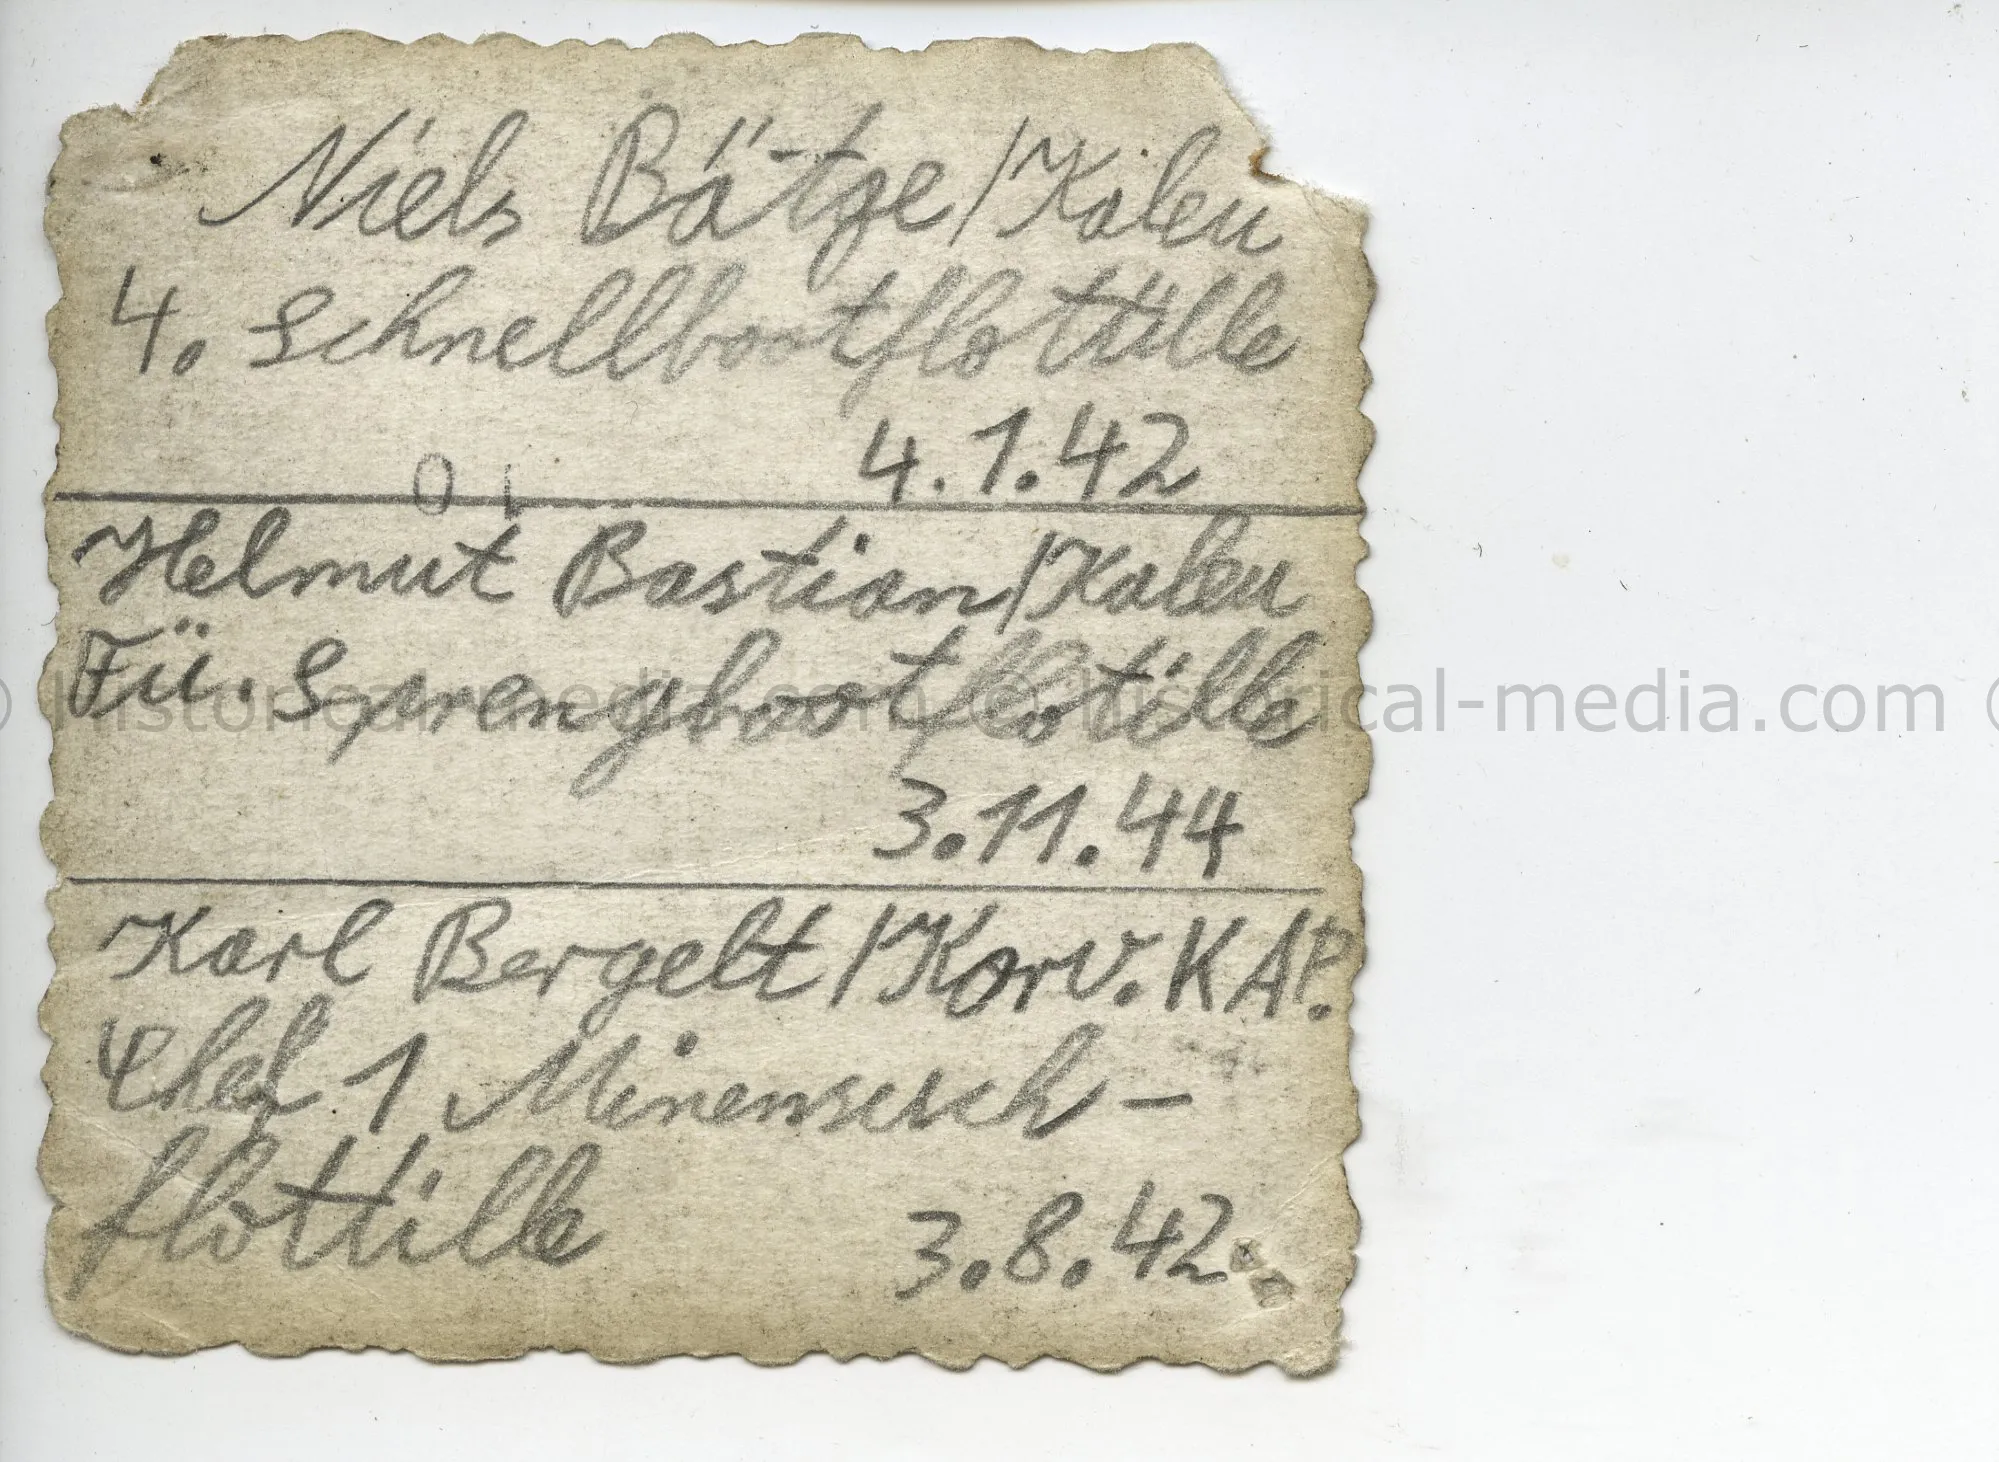 Niels Bätge / Kaleu
4. Schnellbootflottille
4.1.42
Helmut Bastian / Kaleu
Fü. Sprengbootflotille
3.11.44
Karl Bergelt / Korv. KAP.
Chef 1 Minensuch-
flottille 3.8.42
© historical-media.com © historical-media.com ©